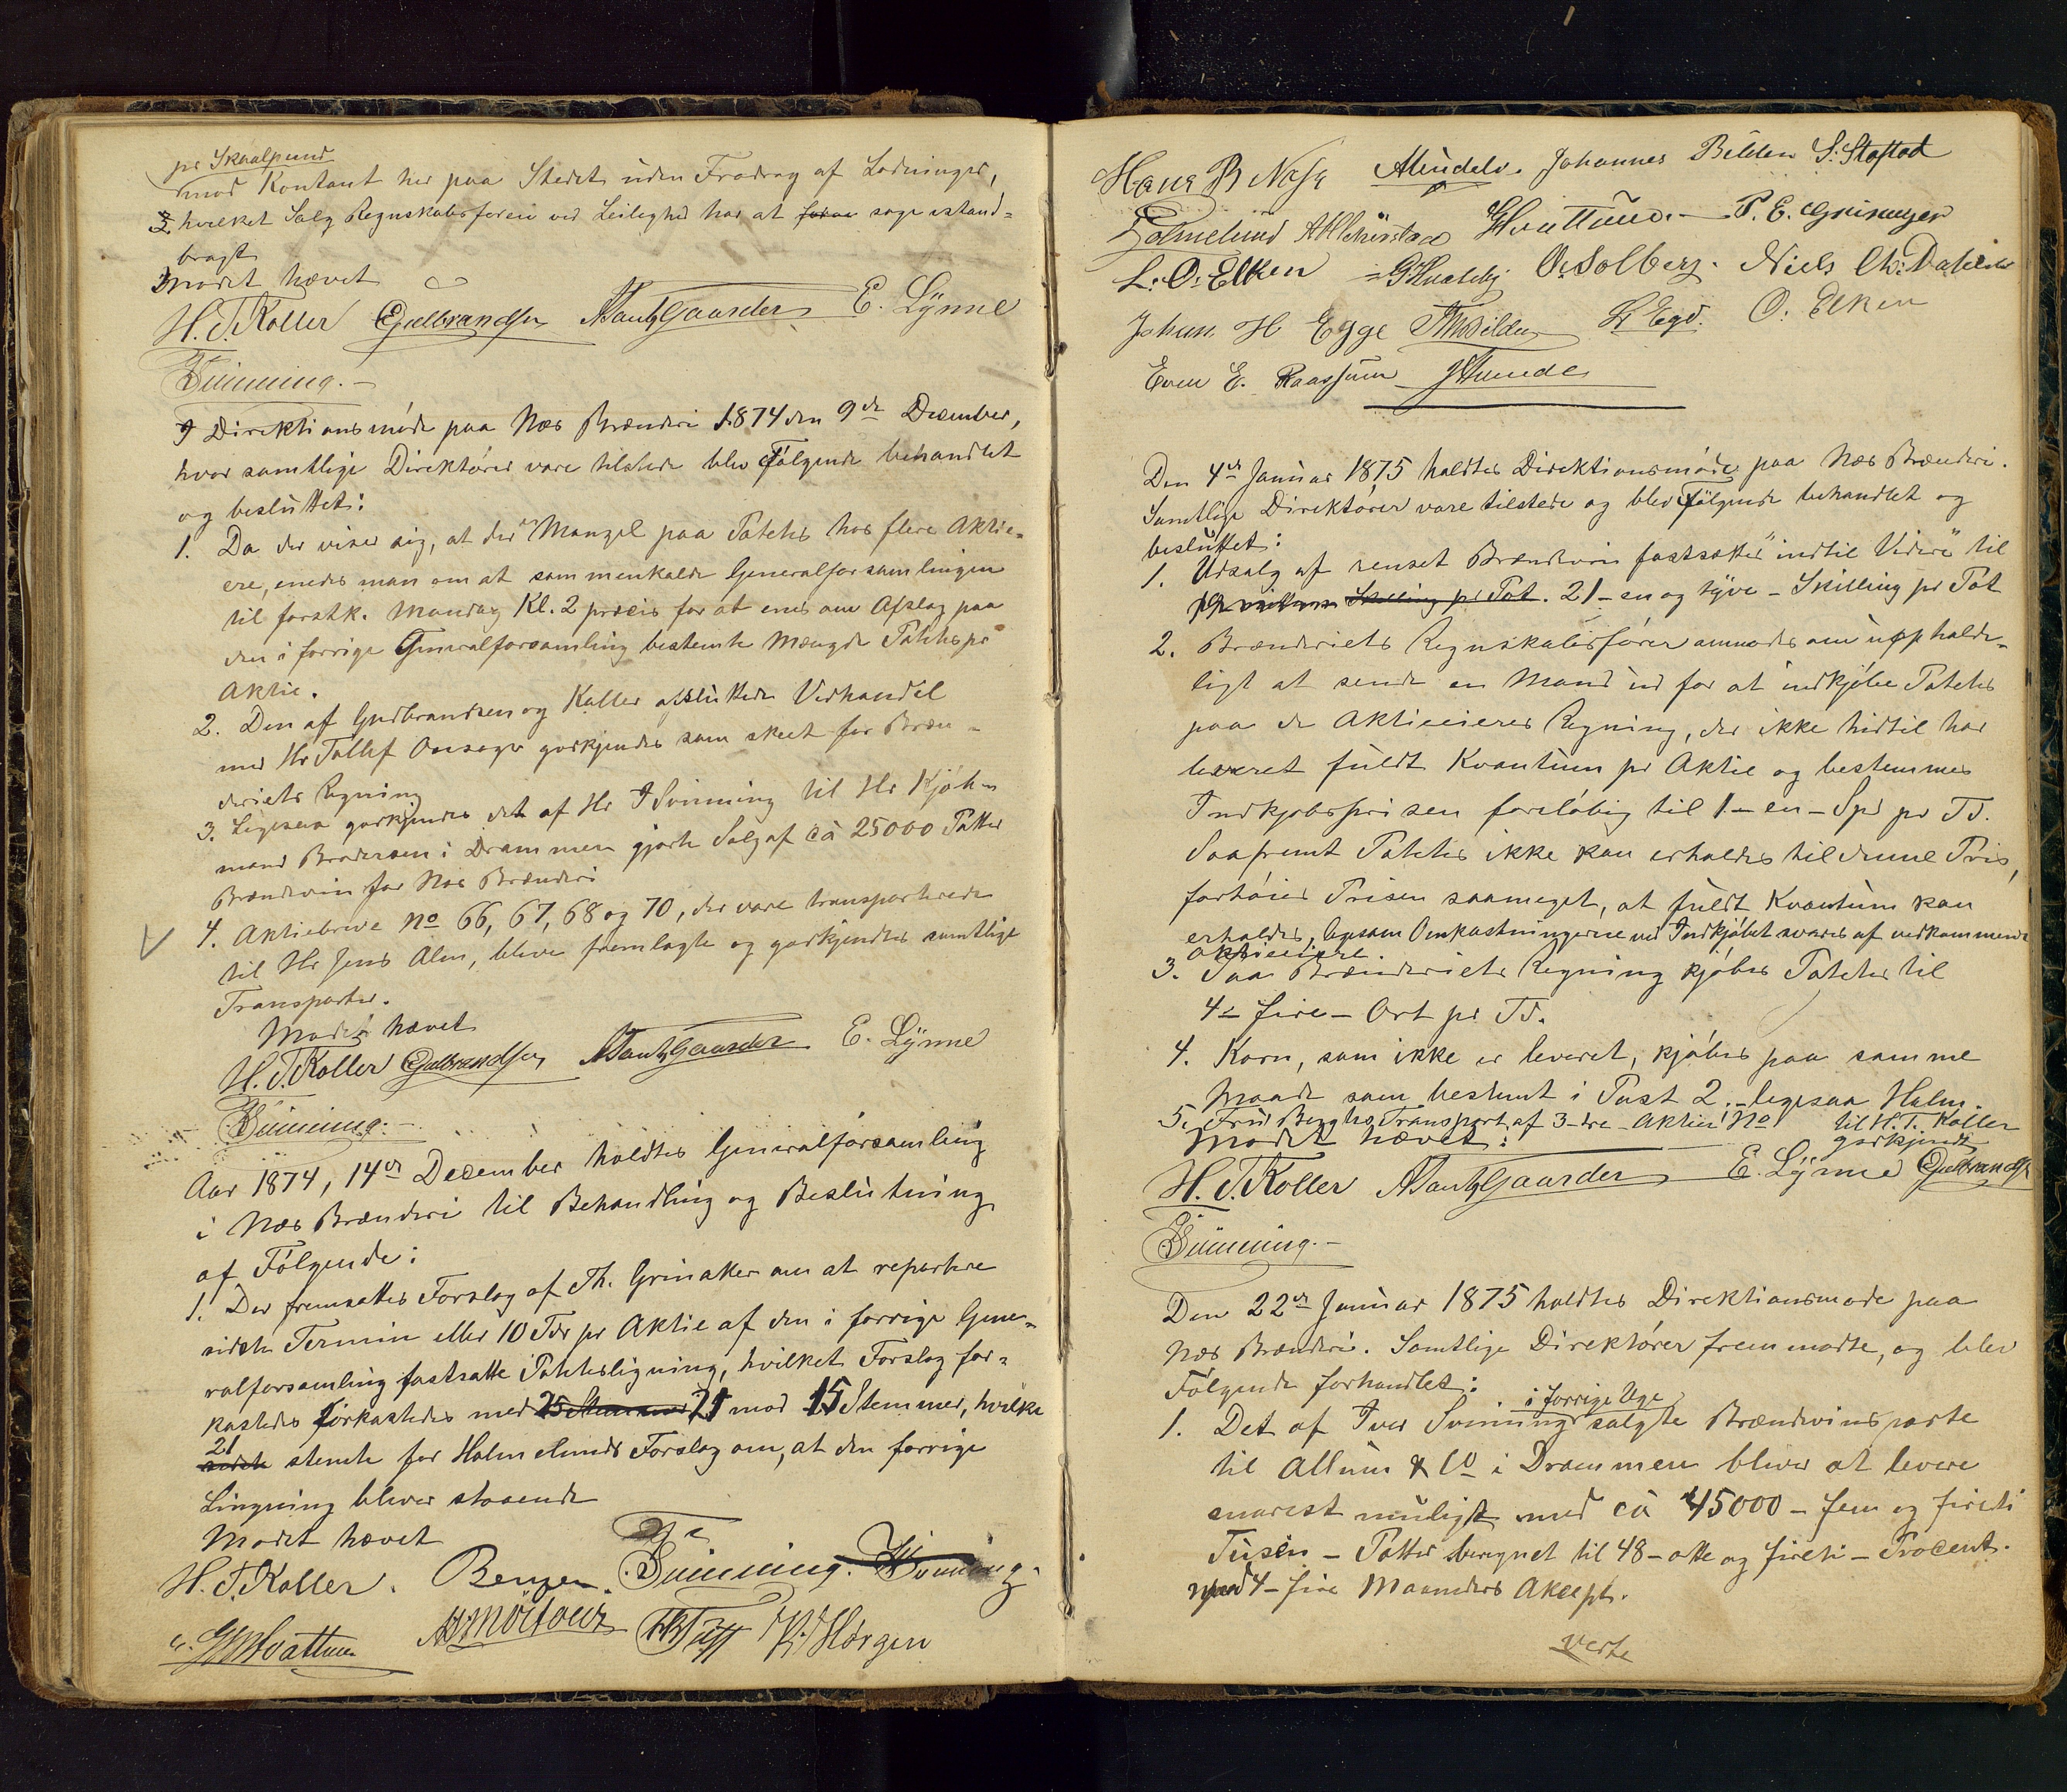 pr Skaalpund
mod Kontant her paa Stedet uden Fradrag af Ladninger,
2. hvilket Salg Regnskabsføreren ved Leilighed har at søge istand-
bragt
Mødet hævet
H. T. Koller Gulbrandsen A Tandb Gaarder E. Lynne
Svinning.-
I Direktionsmøde paa Næs Brænderi 1874 den 9de December,
hvor samtlige Direktører vare tilstede blev Følgende behandlet
og besluttet:
1. Da der viser sig, at der er Mangel paa Poteter hos flere Aktie-
ere, enedes man om at sammenkalde Generalforsamlingen
til førstk. Mandag Kl. 2 præcis for at enes om Afslag paa
den i forrige Generalforsamling bestemte Mængde Poteter pr
Aktie.
2. Den af Gudbrandsen og Koller afsluttede Vedhandel
med Hr Tollef Onsager godkjendes som skeet for Bræn-
deriets Regning
3. Ligesaa godkjendes det af Hr I Svinning til Hr Kjøb-
mand Brodersen i Drammen gjorte Salg af ca 25000 Potter
Brændevin for Næs Brænderi
4. Aktiebreve No 66, 67, 68 og 70, der vare transporterede
til Hr Jens Alm, bleve fremlagte og godkjendtes samtlige
Transporter.
Mødet hævet
H. T. Koller Gulbrandsen A Tandb Gaarder E. Lynne
Svinning.-
Aar 1874, 14de December holdtes Generalforsamling
i Næs Brænderi til Behandling og Beslutning
af Følgende:
1. Der fremsattes Forslag af Th. Grinaker om at repartere
sidste Termin eller 10 Tdr pr Aktie af den i forrige Gene-
ralforsamling fastsatte Potetesligning, hvilket Forslag for-
kastedes Forkastedes med 25 Stemmer 21 mod 15 Stemmer, hvilke
21 sidste stemte for Holmelunds Forslag om, at den forrige
Lingning bliver staaende
Mødet hævet
H. T. Koller. Bergen. Svinning. Svinning.
G M Hvattum A Mørtour Th Toft K. Horgen
Hans B Næss A Lundelv. Johannes Bilden S. Stastad
Holmelund Hvattum.- P. E. Grinager
L. O. Elken G Hvaleby O. Solberg. Niels Chr. Dahlen
Johan H Egge Th Bilden L. Egd. O. Elken
Even E. Raassum J Lunde
Den 4de Januar 1875 holdtes Direktionsmøde paa Næs Brænderi.
Samtlige Direktører vare tilstede og blev Følgende behandlet og
besluttet:
1. Udsalg af renset Brændevin fastsættes "indtil Videre" til
19 nitten Skilling pr Pot. 21 - en og tyve - Skilling pr Pot
2. Brænderiets Regnskabsfører anmodes om uopholde-
ligt at sende en Mand ud for at indkjøbe Poteter
paa de Aktieeieres Regning, der ikke hidtil har
leveret fuldt Kvantum pr Aktie og bestemmes
Indkjøbsprisen foreløbig til 1 - en - Spd pr Td.
Saafremt Poteter ikke kan erholdes til denne Pris,
forhøies Prisen saameget, at fuldt Kvantum kan
erholdes, ligesom Omkostningerne ved Indkjøbet svares af vedkommende
aktieeiere
3. Paa Brænderiets Regning kjøbes Poteter til
4 - fire - Ort pr Td.
4. Korn, som ikke er leveret, kjøbes paa samme
Maade som bestemt i Post 2.- ligesaa Halm.
5. Fru Berghs Transport af 3 - tre - Aktier No til H. T. Koller
godkjendt
Mødet hævet:
H. T. Koller A Tandb Gaarder E. Lynne Gulbrandsen
Svinning.-
Den 22de Januar 1875 holdtes Direktionsmøde paa
Næs Brænderi. Samtlige Direktører fremmødte, og blev
Følgende forhandlet:
i forrige Uge
1. Det af Iver Svinning solgte Brændevinsparti
til Allum & Co i Drammen bliver at levere
snarest muligt med ca 45000 - fem og fireti
Tusen - Potter beregnet til 48 - otte og fireti - Procent.
mod 4 - fire Maaneders Akcept.
verte